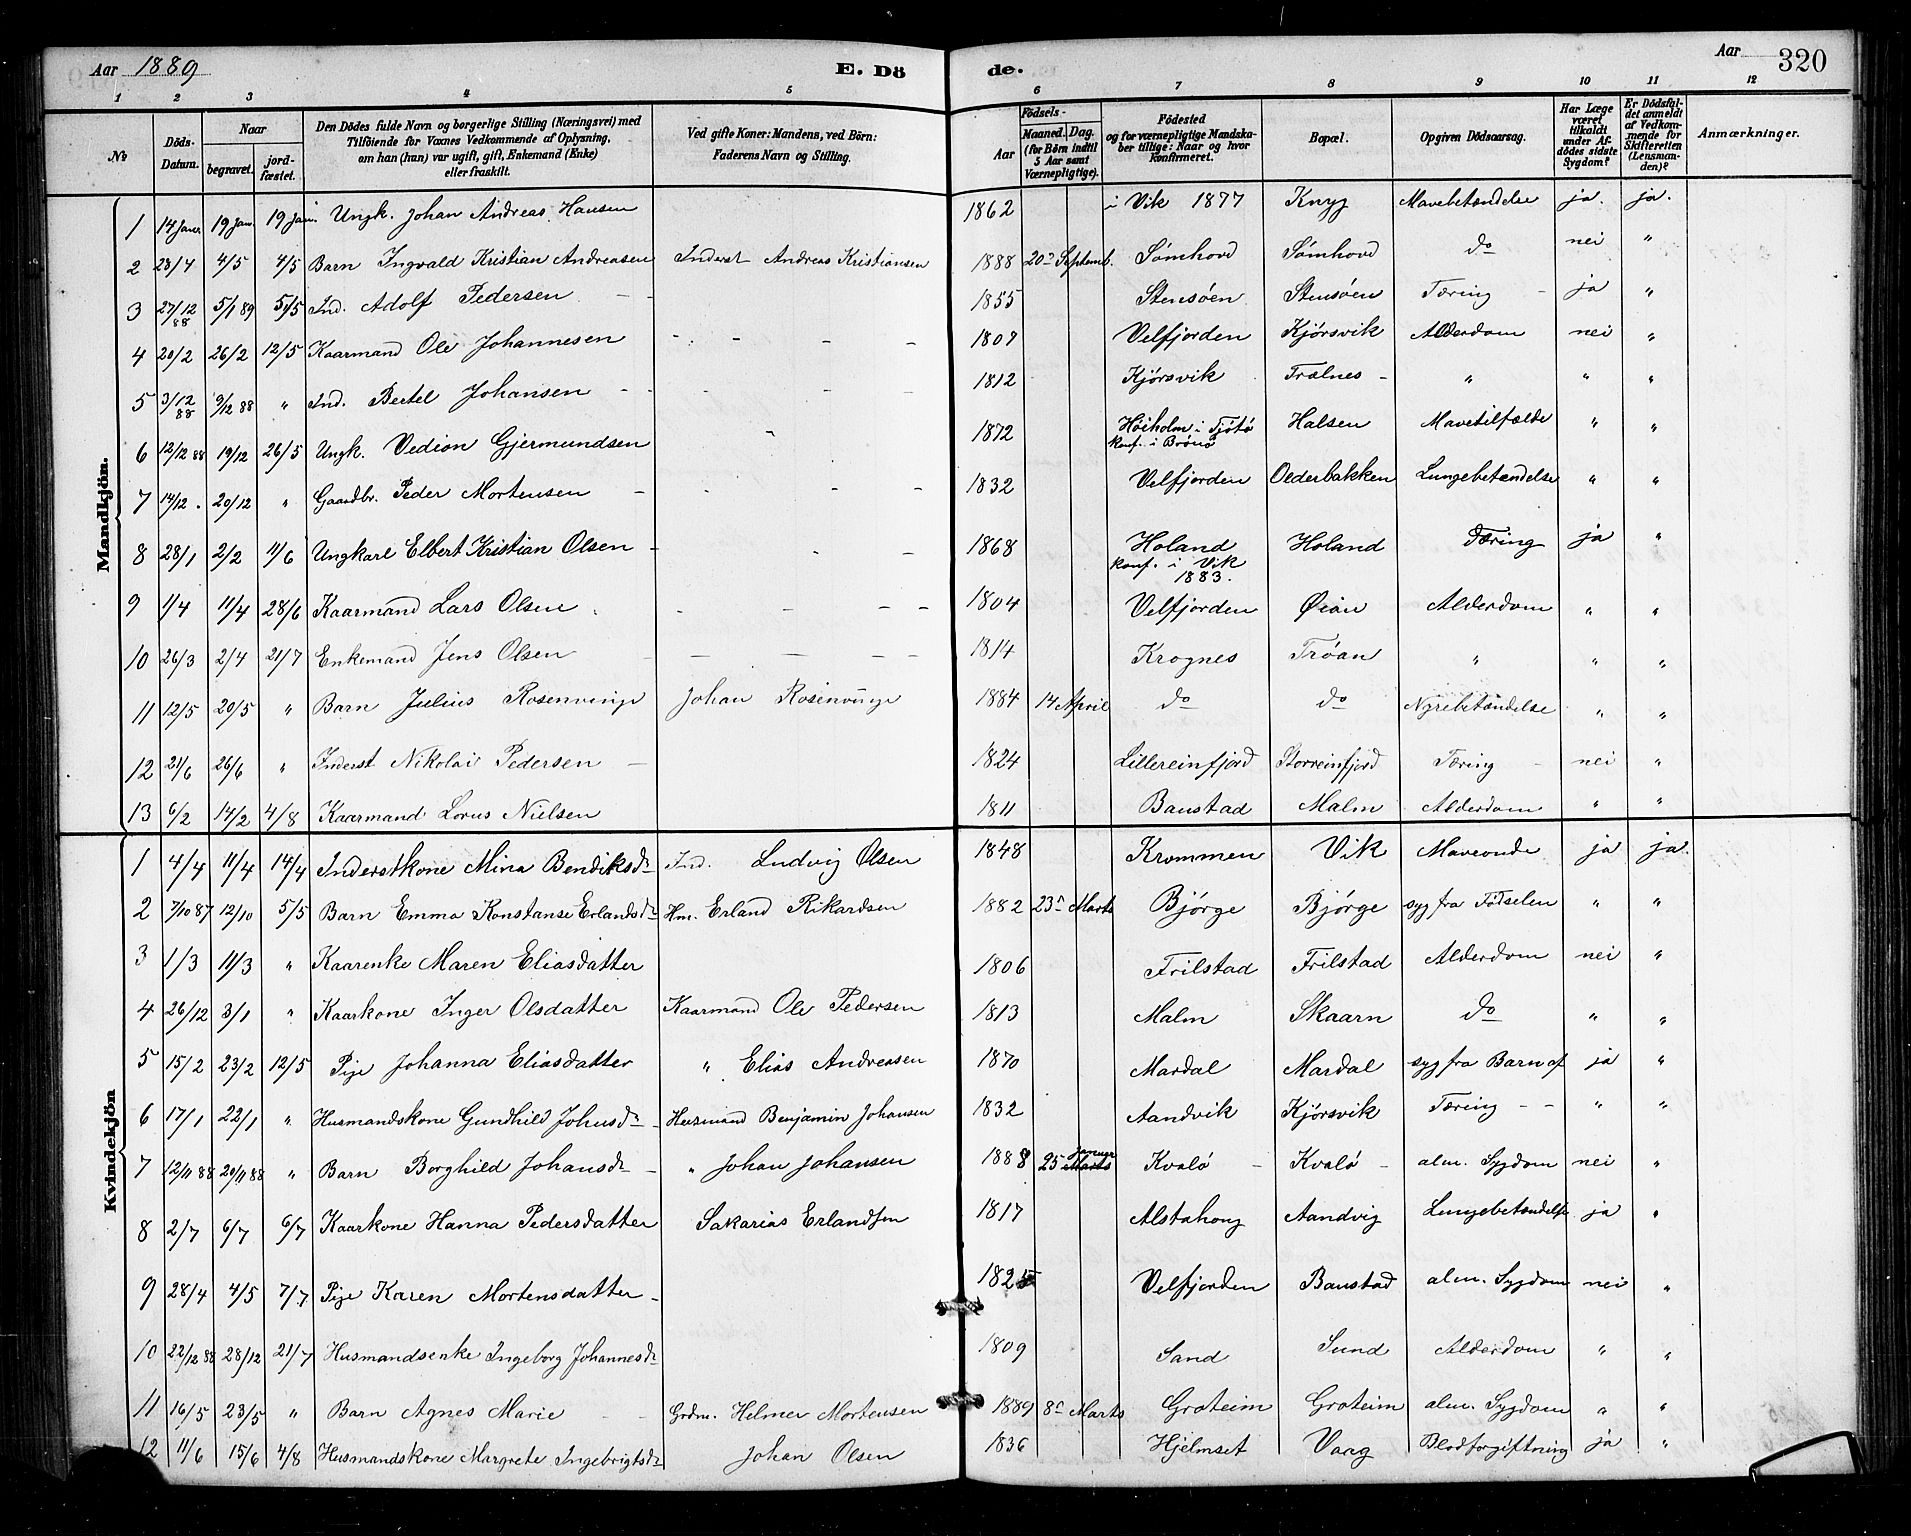 Aar 1889 E. Dö de. Aar 320
1 2 3 4 5 6 7 8 9 10 11 12
№ Döds-Datum. Naar begravet. jordfæstet. Den Dödes fulde Navn og borgerlige Stilling (Næringsvei) med Tilföiende for Voxnes Vedkommende af Oplysning, om han (hun) var ugift, gift, Enkemand (Enke) eller fraskilt. Ved gifte Koner: Mandens, ved Börn: Faderens Navn og Stilling. Aar Födsels- Maaned. Dag. (for Börn indtil 5 Aar samt Værnepligtige). Födested og for værnepligtige Mandskaber tillige: Naar og hvor Konfirmeret. Bopæl. Opgiven Dödsaarsag. Har Læge været tilkaldt under Afdödes sidste Sygdom? Er Dödsfaldet anmeldt af Vedkommende for Skifteretten (Lensmanden)? Anmærkninger.
Mandkjön.
1 14 Janr 19 Jan. 19 Jan. Ungk. Johan Andreas Hansen 1862 i Vik 1877 Knyg Mavebetændelse ja. ja.
2 23/4 4/5 4/5 Barn Ingvald Kristian Andreasen Inderst Andreas Kristiansen 1888 20de Septemb. Sömhovd Sömhovd do nei "
3 27/12 88 5/1 89 5/5 Ind. Adolf Pedersen - - 1855 Stensöen Stensöen Tæring - ja "
4 20/2 26/2 12/5 Kaarmand Ole Johannesen - - - - 1809 Velfjorden Kjörsvik Alderdom nei "
5 3/12 88 9/12 88 " Ind. Bertel Johansen - - 1812 Kjörsvik Trælnes - " " "
6 12/12 88 19/12 26/5 Ungk. Vedion Gjermundsen - 1872 Höiholm i Tjötö konf. i Brönö Halsen Mavetilfælde " "
7 14/12. 20/12 " Gaardbr. Peder Mortensen - - - - 1832 Velfjorden Olderbakken Lungebetændelse " "
8 28/1 2/2 11/6 Ungkarl Elbert Kristian Olsen - - - 1868 Holand konf. i Vik 1883. Holand Tæring ja "
9 1/4 11/4 28/6 Kaarmand Lars Olsen - - - - 1804 Velfjorden Öian Alderdom " "
10 26/3 2/4 21/7 Enkemand Jens Olsen - - - - - 1814 Krognes Tröan " " "
11 12/5 20/5 " Barn Julius Rosenvinge Johan Rosenvinge 1884 14 April do do Nyrebetændelse " "
12 21/6 26/6 " Inderst Nikolai Pedersen - 1824 Lillereinfjord Storreinfjord Tæring - nei "
13 6/2 14/2 4/8 Kaarmand Lorus Nielsen 1811 Baustad Malm Alderdom " "
Kvindekjön
1 4/4 11/4 14/4 Inderstkone Mina Bendiksdr Ind. Ludvig Olsen 1848 Krommen Vik Maveonde ja ja.
2 7/10 87 12/10 5/5 Barn Emma Konstanse Erlandsdr Hm. Erland Rikardsen 1882 23de Marts Bjørge Bjørge syg fra Födselen " "
3 1/3 11/3 " Kaarenke Maren Eliasdatter 1806 Frilstad Frilstad Alderdom nei "
4 26/12 3/1 " Kaarkone Inger Olsdatter Kaarmand Ole Pedersen 1813 Malm Skaarn do " "
5 15/2 23/2 12/5 Pige Johanna Eliasdatter " Elias Andreasen 1870 Mardal Mardal syg fra Barn af ja "
6 17/1 22/1 " Husmandskone Gundhild Johnsdr - Husmand Benjamin Johansen 1832 Aandvik Kjörsvik Tæring - - " "
7 12/11 88 20/11 88 " Barn Borghild Johansdr - " Johan Johansen 1888 25 Januar Marts Kvalö - Kvalö - alm. Sygdom nei "
8 2/7 6/7 6/7 Kaarkone Hanna Pedersdatter Sakarias Erlandsen 1817 Alstahoug Aandvig Lungebetændelse ja "
9 28/4 4/5 7/7 Pige Karen Mortensdatter - 1825 Velfjorden Baustad alm. Sygdom nei "
10 22/12 88 28/12 21/7 Husmandsenke Ingeborg Johannesdr 1809 Sand Sund Alderdom " "
11 16/5 23/5 " Barn Agnes Marie - - Grdm. Helmer Mortensen 1889 8de Marts Groteim Groteim alm. Sygdom " "
12 11/6 15/6 4/8 Husmandskone Margrete Ingebrigtsdr Johan Olsen 1836 Hjelmset Vang Blodforgiftning ja "